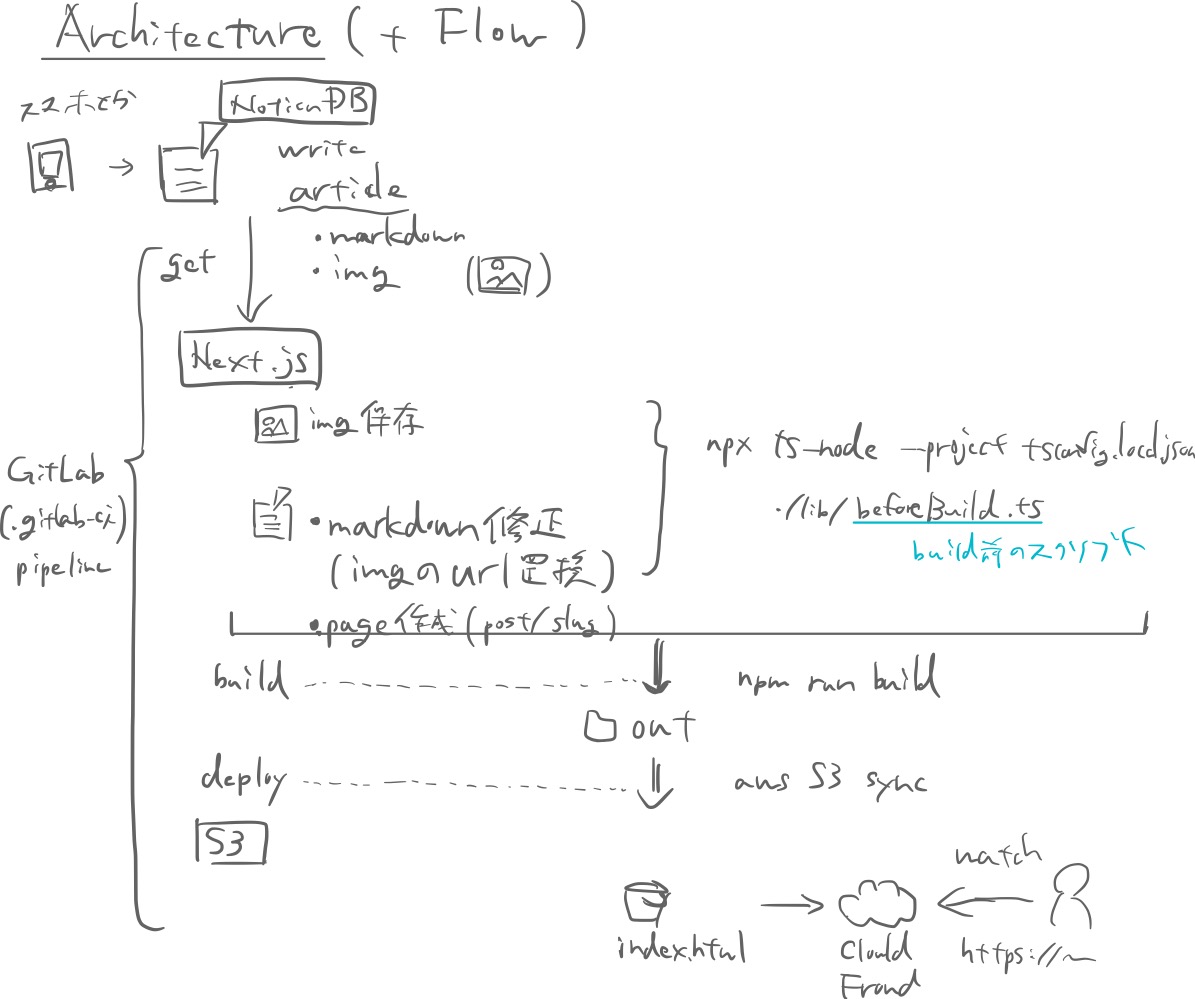 Architecture (+ Flow)
スマホとか
Notion DB
write
article
・markdown
・img
get
Next.js
img保存
・markdown修正
(imgのurl置換)
・page作成(post/slug)
npx ts-node --project tsconfig.local.json
./lib/beforeBuild.ts
build前のスクリプト
GitLab
(.gitlab-ci)
pipeline
build
npm run build
out
deploy
aws S3 sync
S3
index.html
Clould
Frond
watch
https://~